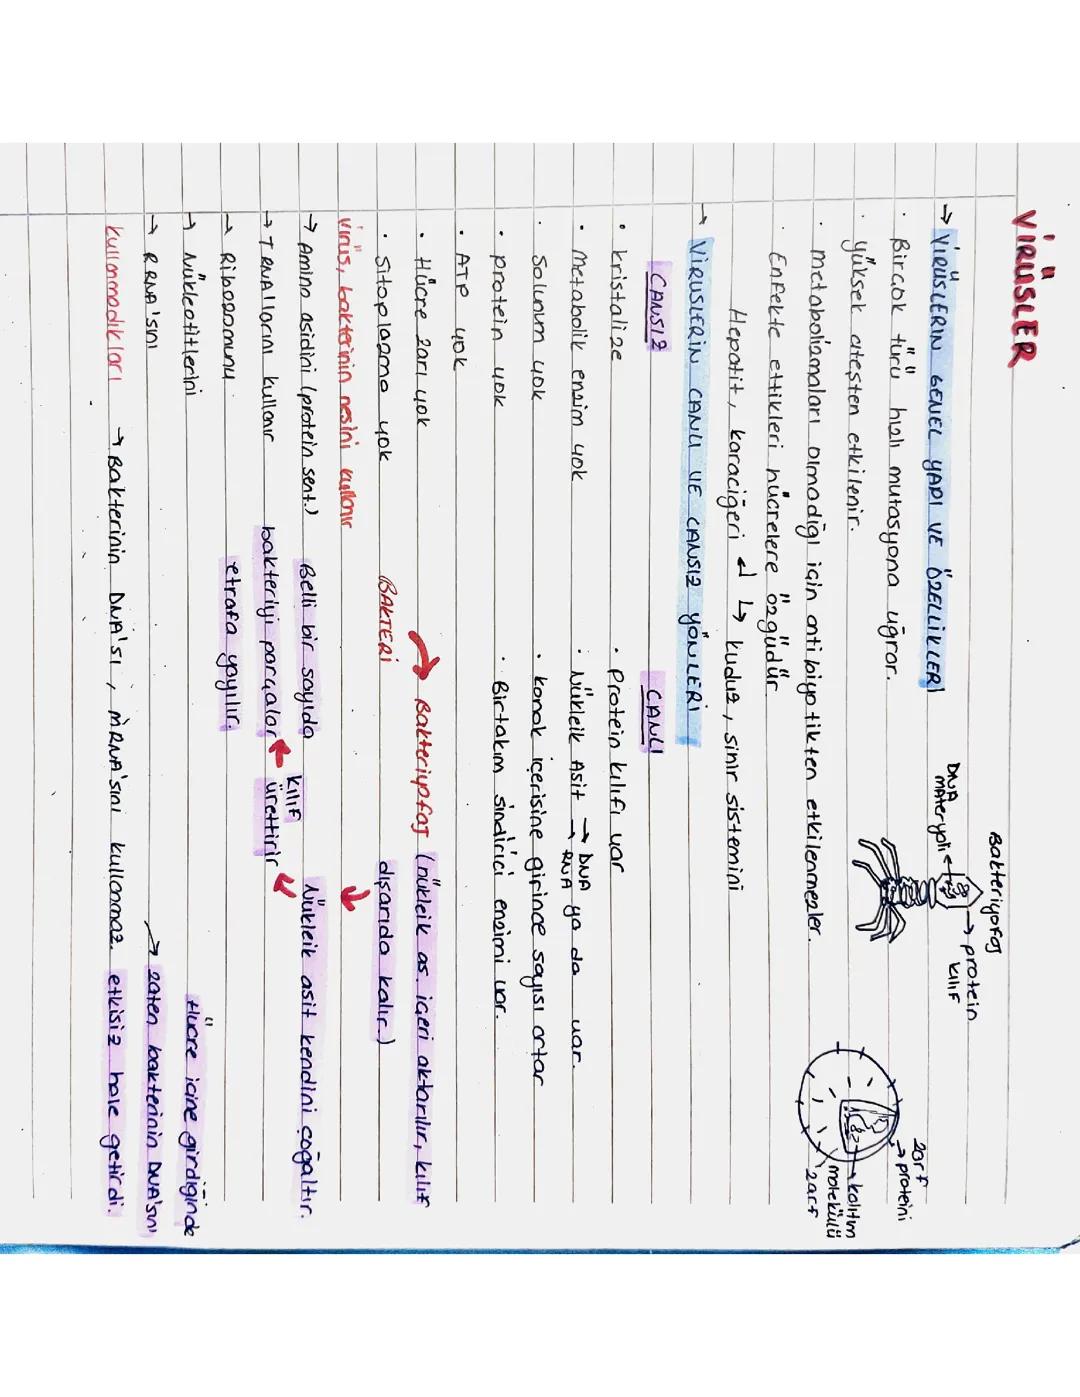 VİRÜSLER
→ VİRÜSLERİN GENEL YAPI VE ÖZELLİKLERİ
Bakteriyofaj
DNA materyali
protein kılıf
zarf proteini
kalıtım molekülü
zarf
· Birçok türü hızlı mutasyona uğrar.
· yüksek ateşten etkilenir.
· metabolizmaları olmadığı için antibiyotikten etkilenmezler.
· Enfekte ettikleri hücrelere özgüdür
Hepatit, karaciğeri ↲ ↳ kuduz, sinir sistemini
→ VİRÜSLERİN CANLI VE CANSIZ YÖNLERİ
CANSIZ
· kristalize
· Metabolik enzim yok
· Solunum yok
· protein yok
· ATP yok
· Hücre zarı yok
· Sitoplazma yok
CANLI
· Protein kılıfı var
· Nükleik Asit → DNA ya da → RNA var.
· konak içerisine girince sayısı artar
· Birtakım sindirici enzimi var.
virüs, bakterinin nesini kullanır
→ Amino asidini (protein sent.)
→ TRNA'larını kullanır
→ Ribozomunu
→ Nükleotitlerini
→ RRNA'sını
BAKTERİ
Bakteriyofaj (nükleik as. içeri aktarılır, kılıf
dışarıda kalır.)
Nükleik asit kendini çoğaltır.
kılıf
ürettirir
Belli bir sayıda
bakteriyi parçalar
etrafa yayılır.
kullanmadıkları → Bakterinin DNA'sı, mRNA'sını kullanmaz.
Hücre içine girdiğinde
→ zaten bakterinin DNA'sını
etkisiz hale getirdi.